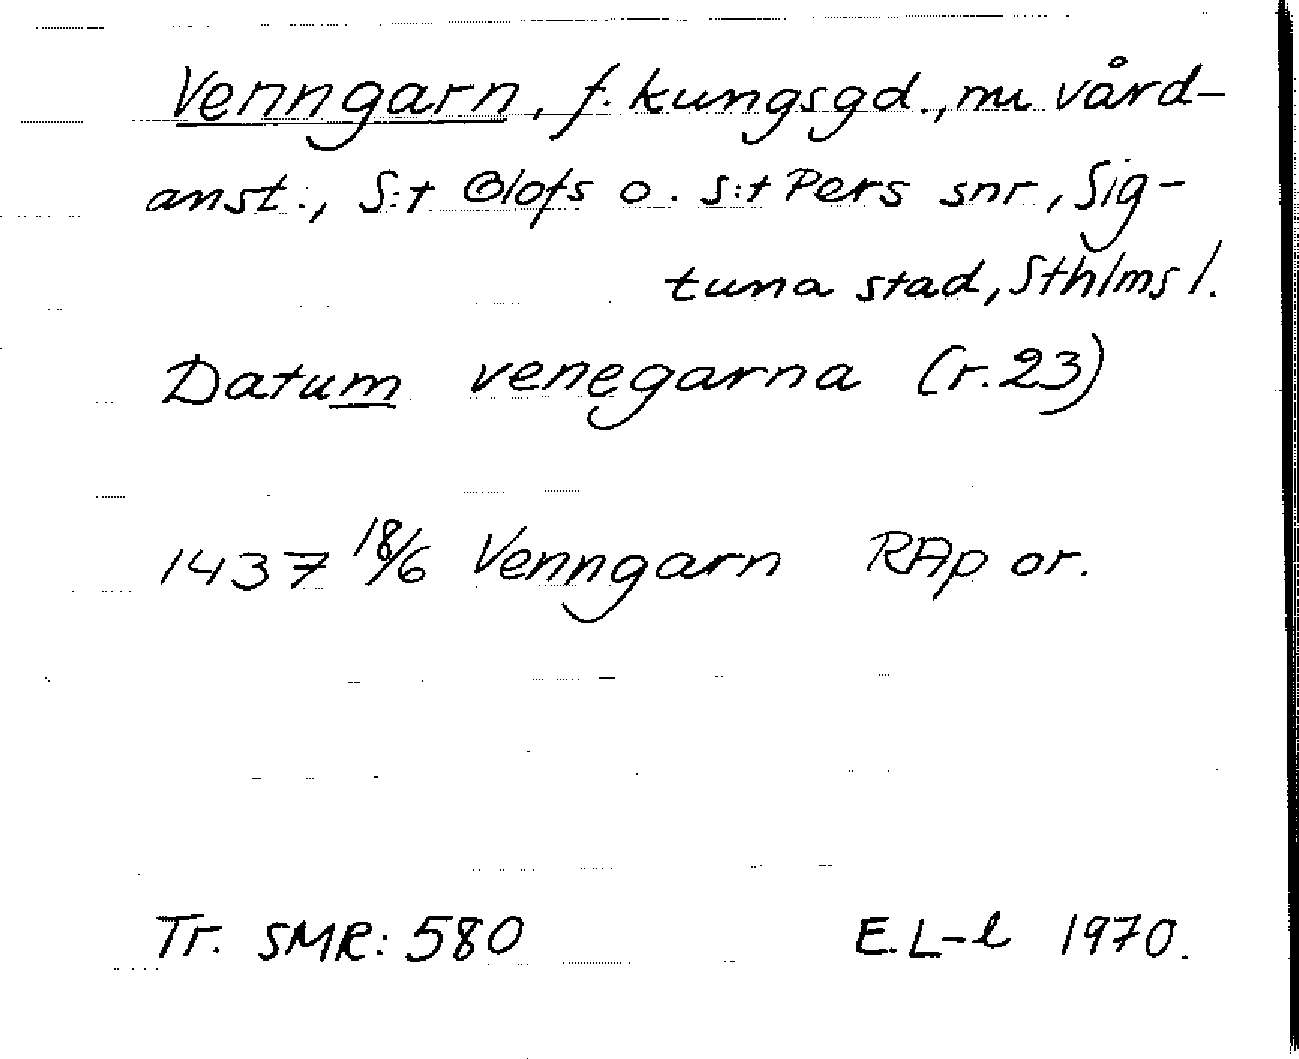 Venngarn, f. kungsgd., nu vård-
anst., S:t Olofs o. S:t Pers snr, Sig-
tuna stad, Sthlms l.
Datum venegarna (r. 23)
1437 18/6 Venngarn RAp or.
Tr. SMR: 580 E. L-l 1970.